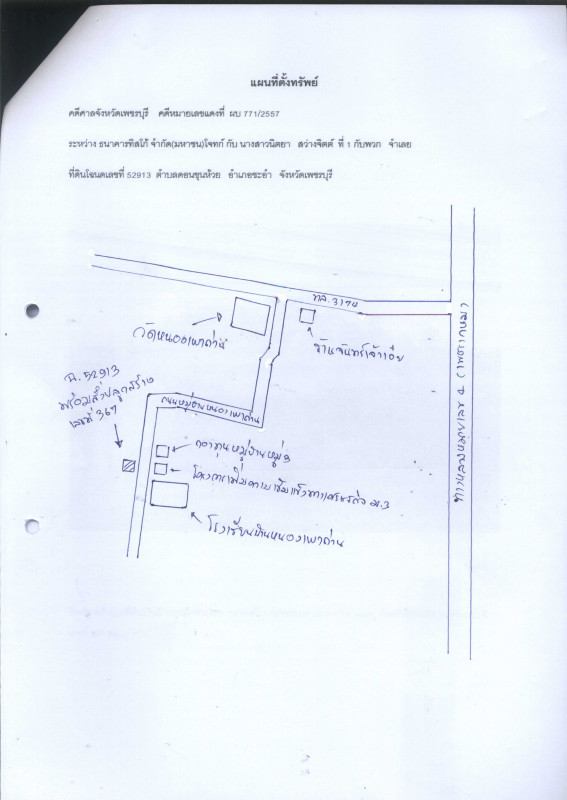 แผนที่ตั้งทรัพย์
คดีศาลจังหวัดเพชรบุรี คดีหมายเลขแดงที่ ผบ 771/2557
ระหว่าง ธนาคารทิสโก้ จำกัด(มหาชน)โจทก์ กับ นางสาวนิตยา สว่างจิตต์ ที่ 1 กับพวก จำเลย
ที่ดินโฉนดเลขที่ 52913 ตำบลดอนขุนห้วย อำเภอชะอำ จังหวัดเพชรบุรี
ทล.3174
วัดหนองเผาถ่าน
ร้านจันทร์เจ้าเอ๋ย
ถ.52913
พร้อมสิ่งปลูกสร้าง
เลขที่ 367
ถนนหมู่บ้านหนองเผาถ่าน
กองทุนหมู่บ้านหมู่ 3
ม.3
โรงเรียนบ้านหนองเผาถ่าน
ทางหลวงหมายเลข 4 (เพชรเกษม)